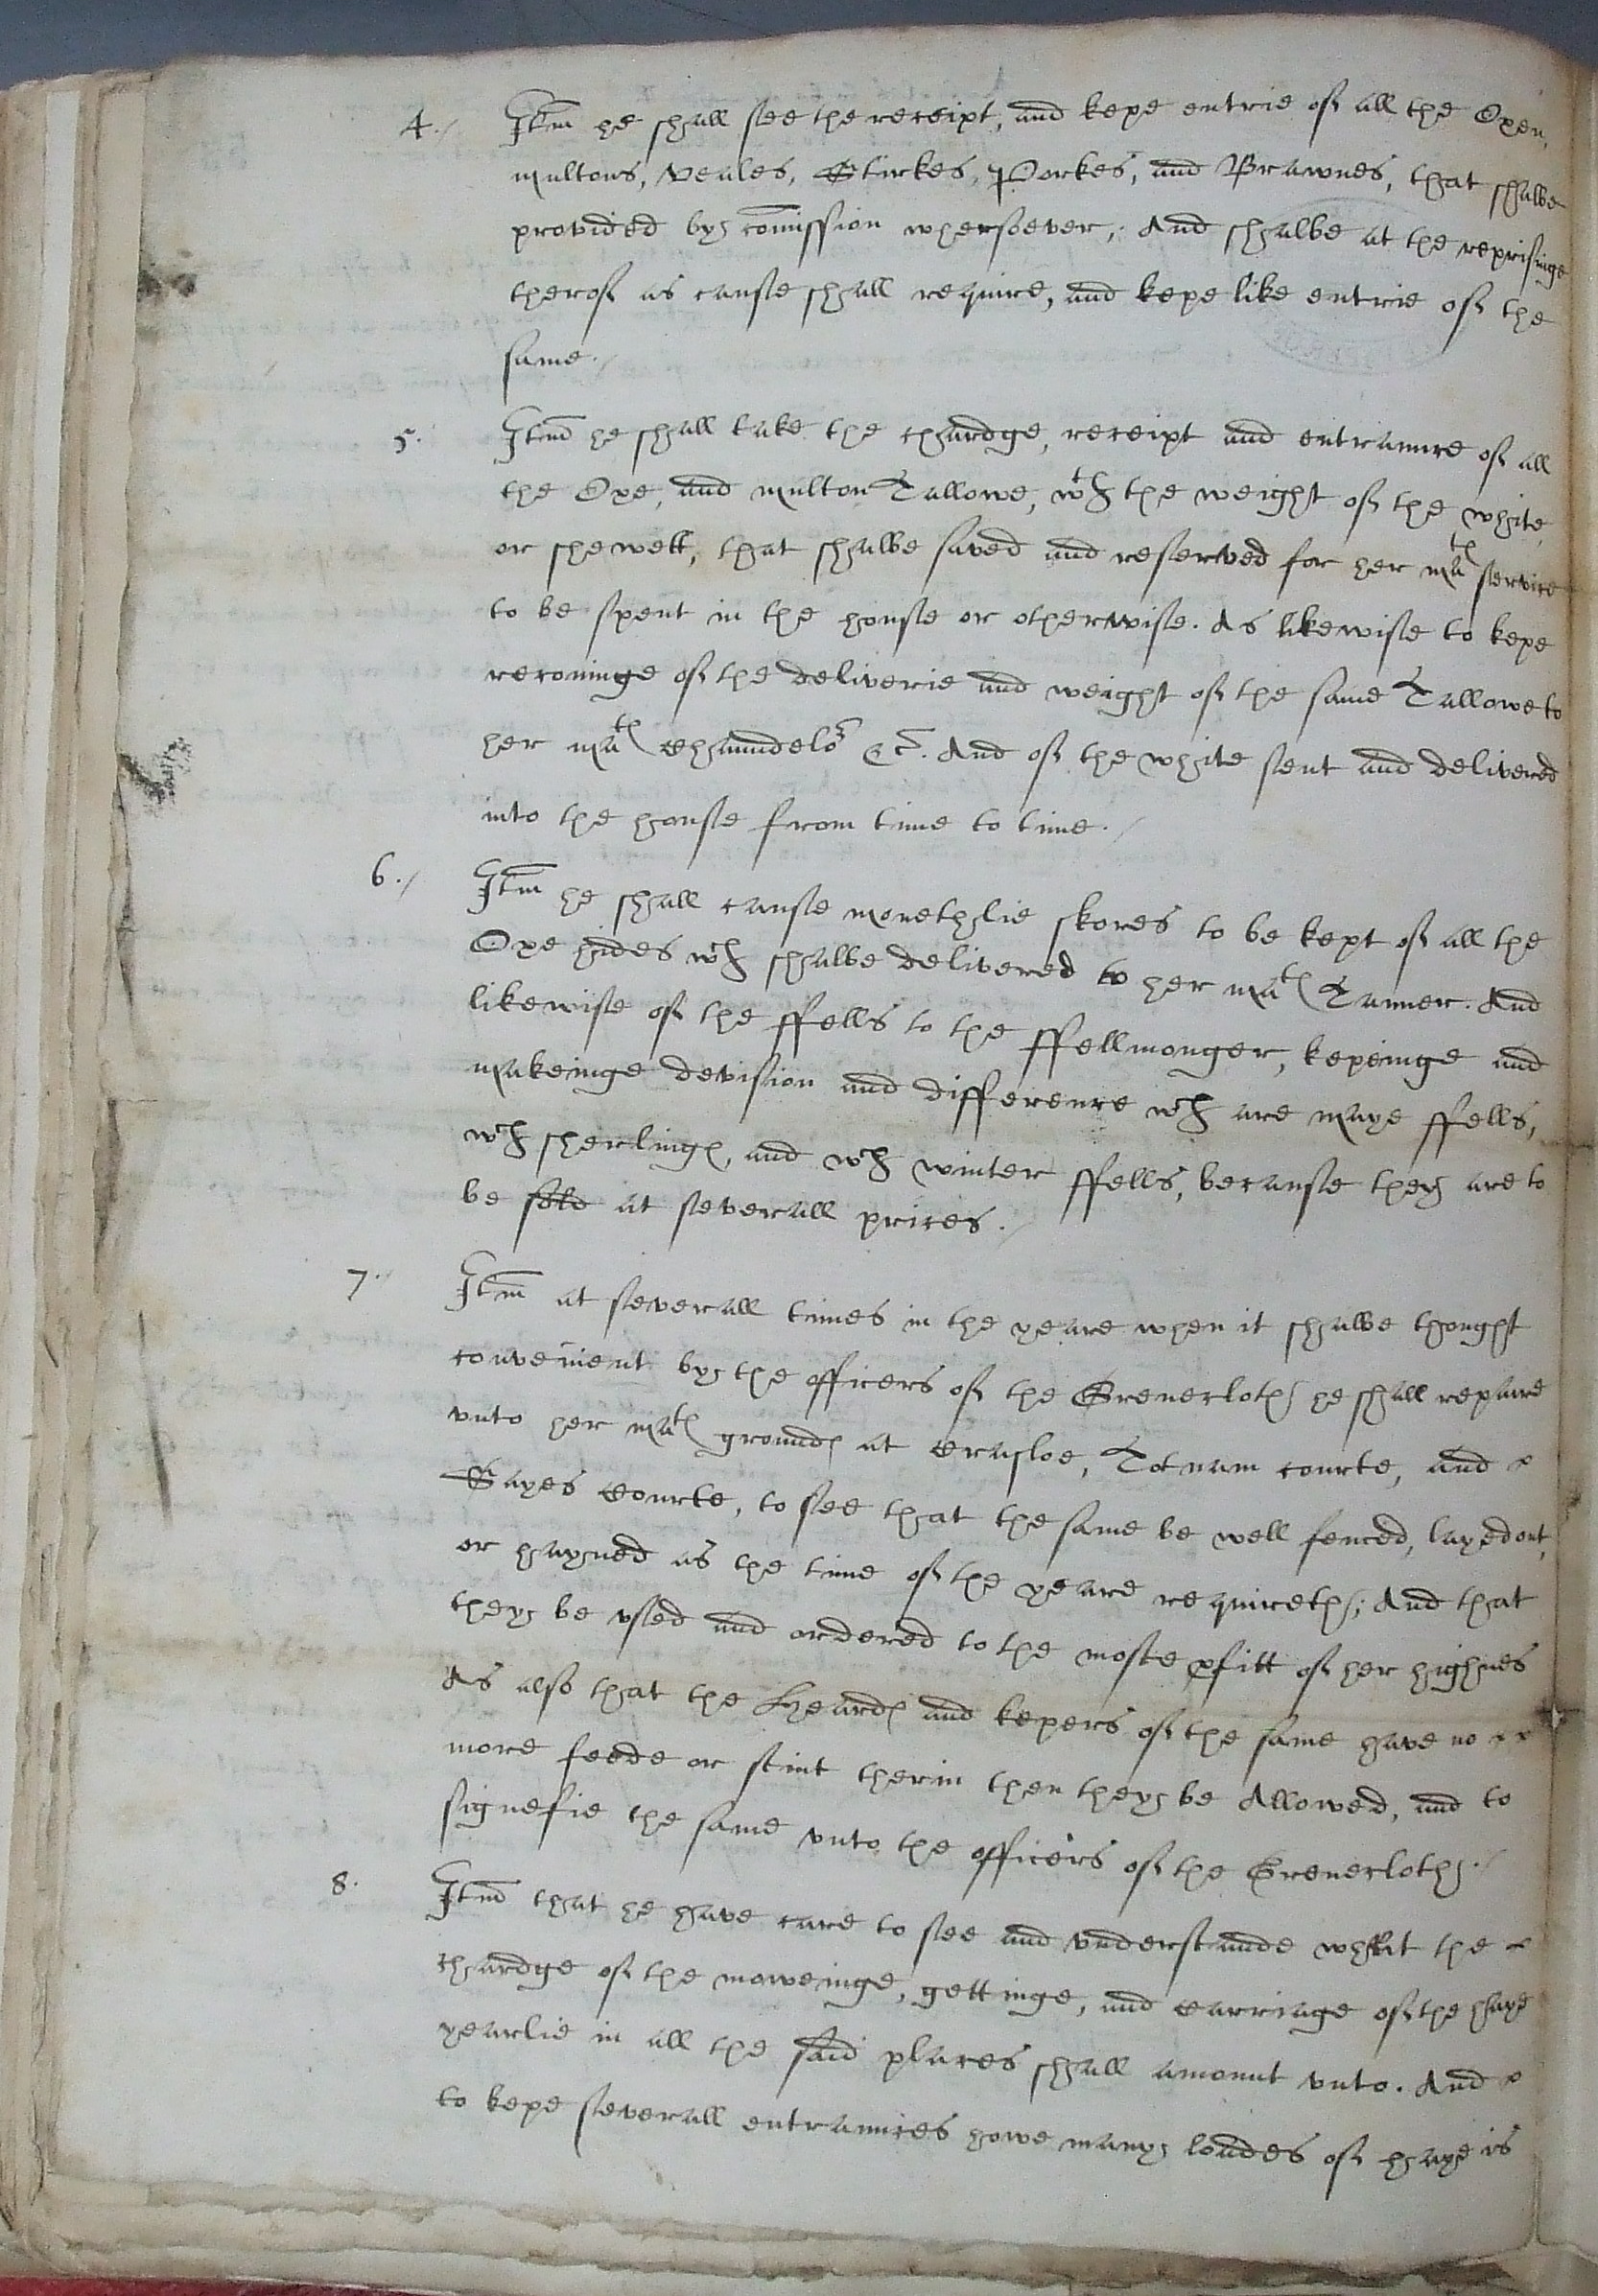 4./ Itm he shall see the receipt, and kepe entrie of all the Oxen,
multons, veales, Stirkes, Porkes, and Brawnes, that shalbe
provided by comission whersoever, And shalbe at the reprisinge
therof as cause shall require, and kepe like entrie of the
same./
5. Itm he shall take the chardge, receipt and entraunce of all
the Oxe, and multon Tallowe, wth the weight of the white,
or shewett, that shalbe saved and reserved for her mats service
to be spent in the house or otherwise. As likewise to kepe
reconinge of the deliverie and weight of the same Tallowe to
her mats Chaundelor &c. And of the white sent and delivered
into the house from time to time./
6./ Itm he shall cause monethlie skores to be kept of all the
Oxe hides wch shalbe delivered to her mats Tanner. And
likewise of the ffells to the ffellmonger, kepeinge and
makeinge devision and difference wch are maye ffells,
wch sherlings, and wch winter ffells, because they are to
be sold at severall prices./
7. Itm at severall times in the yeare when it shalbe thought
convenient by the officers of the Grenecloth he shall repaire
unto her mats grounds at Crasloe, Totnam courte, and
Sayes Courte, to see that the same be well fenced, layed out,
or hayned as the time of the yeare requireth; And that
they be used and ordered to the moste pfitt of her highnes
As also that the Heards and kepers of the same have no
more feede or stint therin then they be Allowed, and to
signefie the same unto the officers of the Grenecloth./
8. Itm that he have care to see and understande what the
chardge of the moweinge, gettinge, and Carriage of the haye
yearlie in all the said places shall amount unto. And
to kepe severall entraunces howe many loades of haye is